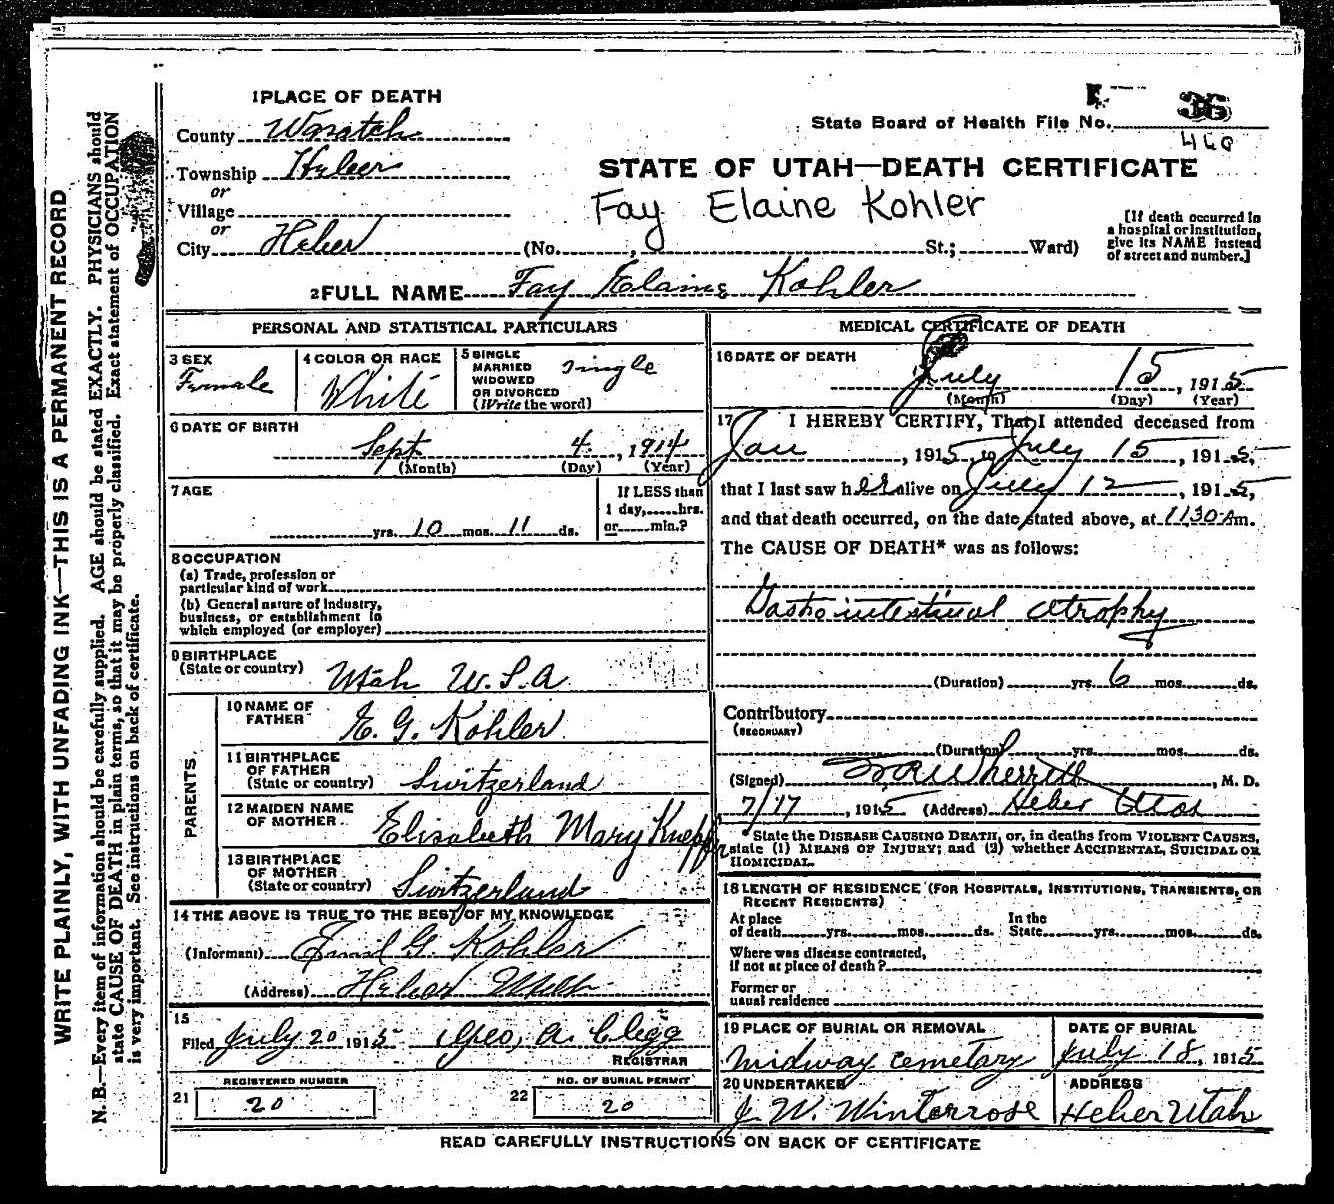 1 PLACE OF DEATH
County Wasatch
Township Heber
or
Village
or
City Heber (No. , St.; Ward)
State Board of Health File No. 36
460
STATE OF UTAH—DEATH CERTIFICATE
Fay Elaine Kohler
[If death occurred in
a hospital or institution,
give its NAME instead
of street and number.]
2 FULL NAME Fay Elaine Kohler
PERSONAL AND STATISTICAL PARTICULARS
3 SEX
Female
4 COLOR OR RACE
White
5 SINGLE
MARRIED
WIDOWED
OR DIVORCED
(Write the word)
single
6 DATE OF BIRTH
Sept 4, 1914
(Month) (Day) (Year)
7 AGE
yrs. 10 mos. 11 ds.
If LESS than
1 day,.....hrs.
or......min.?
8 OCCUPATION
(a) Trade, profession or
particular kind of work
(b) General nature of industry,
business, or establishment in
which employed (or employer)
9 BIRTHPLACE
(State or country) Utah U.S.A
PARENTS.
10 NAME OF
FATHER E. G. Kohler.
11 BIRTHPLACE
OF FATHER
(State or country) Switzerland
12 MAIDEN NAME
OF MOTHER Elisabeth Mary
13 BIRTHPLACE
OF MOTHER
(State or country) Switzerland
14 THE ABOVE IS TRUE TO THE BEST OF MY KNOWLEDGE
(Informant) Emil G. Kohler
(Address) Heber Utah
15
Filed July 20 1915 Geo. A. Clegg
REGISTRAR
REGISTERED NUMBER
21 20
NO. OF BURIAL PERMIT
22 20
MEDICAL CERTIFICATE OF DEATH
16 DATE OF DEATH
July 15, 1915
(Month) (Day) (Year)
17 I HEREBY CERTIFY, That I attended deceased from
Jan , 1915, to July 15, 1915,
that I last saw her alive on July 12, 1915,
and that death occurred, on the date stated above, at 1130 Am.
The CAUSE OF DEATH* was as follows:
Gastrointestinal atrophy
(Duration) yrs. 6 mos. ds.
Contributory
(SECONDARY)
(Duration) yrs. mos. ds.
(Signed) Wherritt, M. D.
7/17, 1915 (Address) Heber Utah
State the DISEASE CAUSING DEATH, or, in deaths from VIOLENT CAUSES,
state (1) MEANS OF INJURY; and (2) whether ACCIDENTAL, SUICIDAL OR
HOMICIDAL.
18 LENGTH OF RESIDENCE (FOR HOSPITALS, INSTITUTIONS, TRANSIENTS, OR
RECENT RESIDENTS)
At place
of death yrs. mos. ds.
In the
State yrs. mos. ds.
Where was disease contracted,
if not at place of death?
Former or
usual residence
19 PLACE OF BURIAL OR REMOVAL
Midway Cemetary
DATE OF BURIAL
July 18, 1915
20 UNDERTAKER
J. W. Winterrose
ADDRESS
Heber Utah
READ CAREFULLY INSTRUCTIONS ON BACK OF CERTIFICATE
WRITE PLAINLY, WITH UNFADING INK—THIS IS A PERMANENT RECORD
N. B.—Every item of information should be carefully supplied. AGE should be stated EXACTLY. PHYSICIANS should
state CAUSE OF DEATH in plain terms, so that it may be properly classified. Exact statement of OCCUPATION
is very important. See instructions on back of certificate.